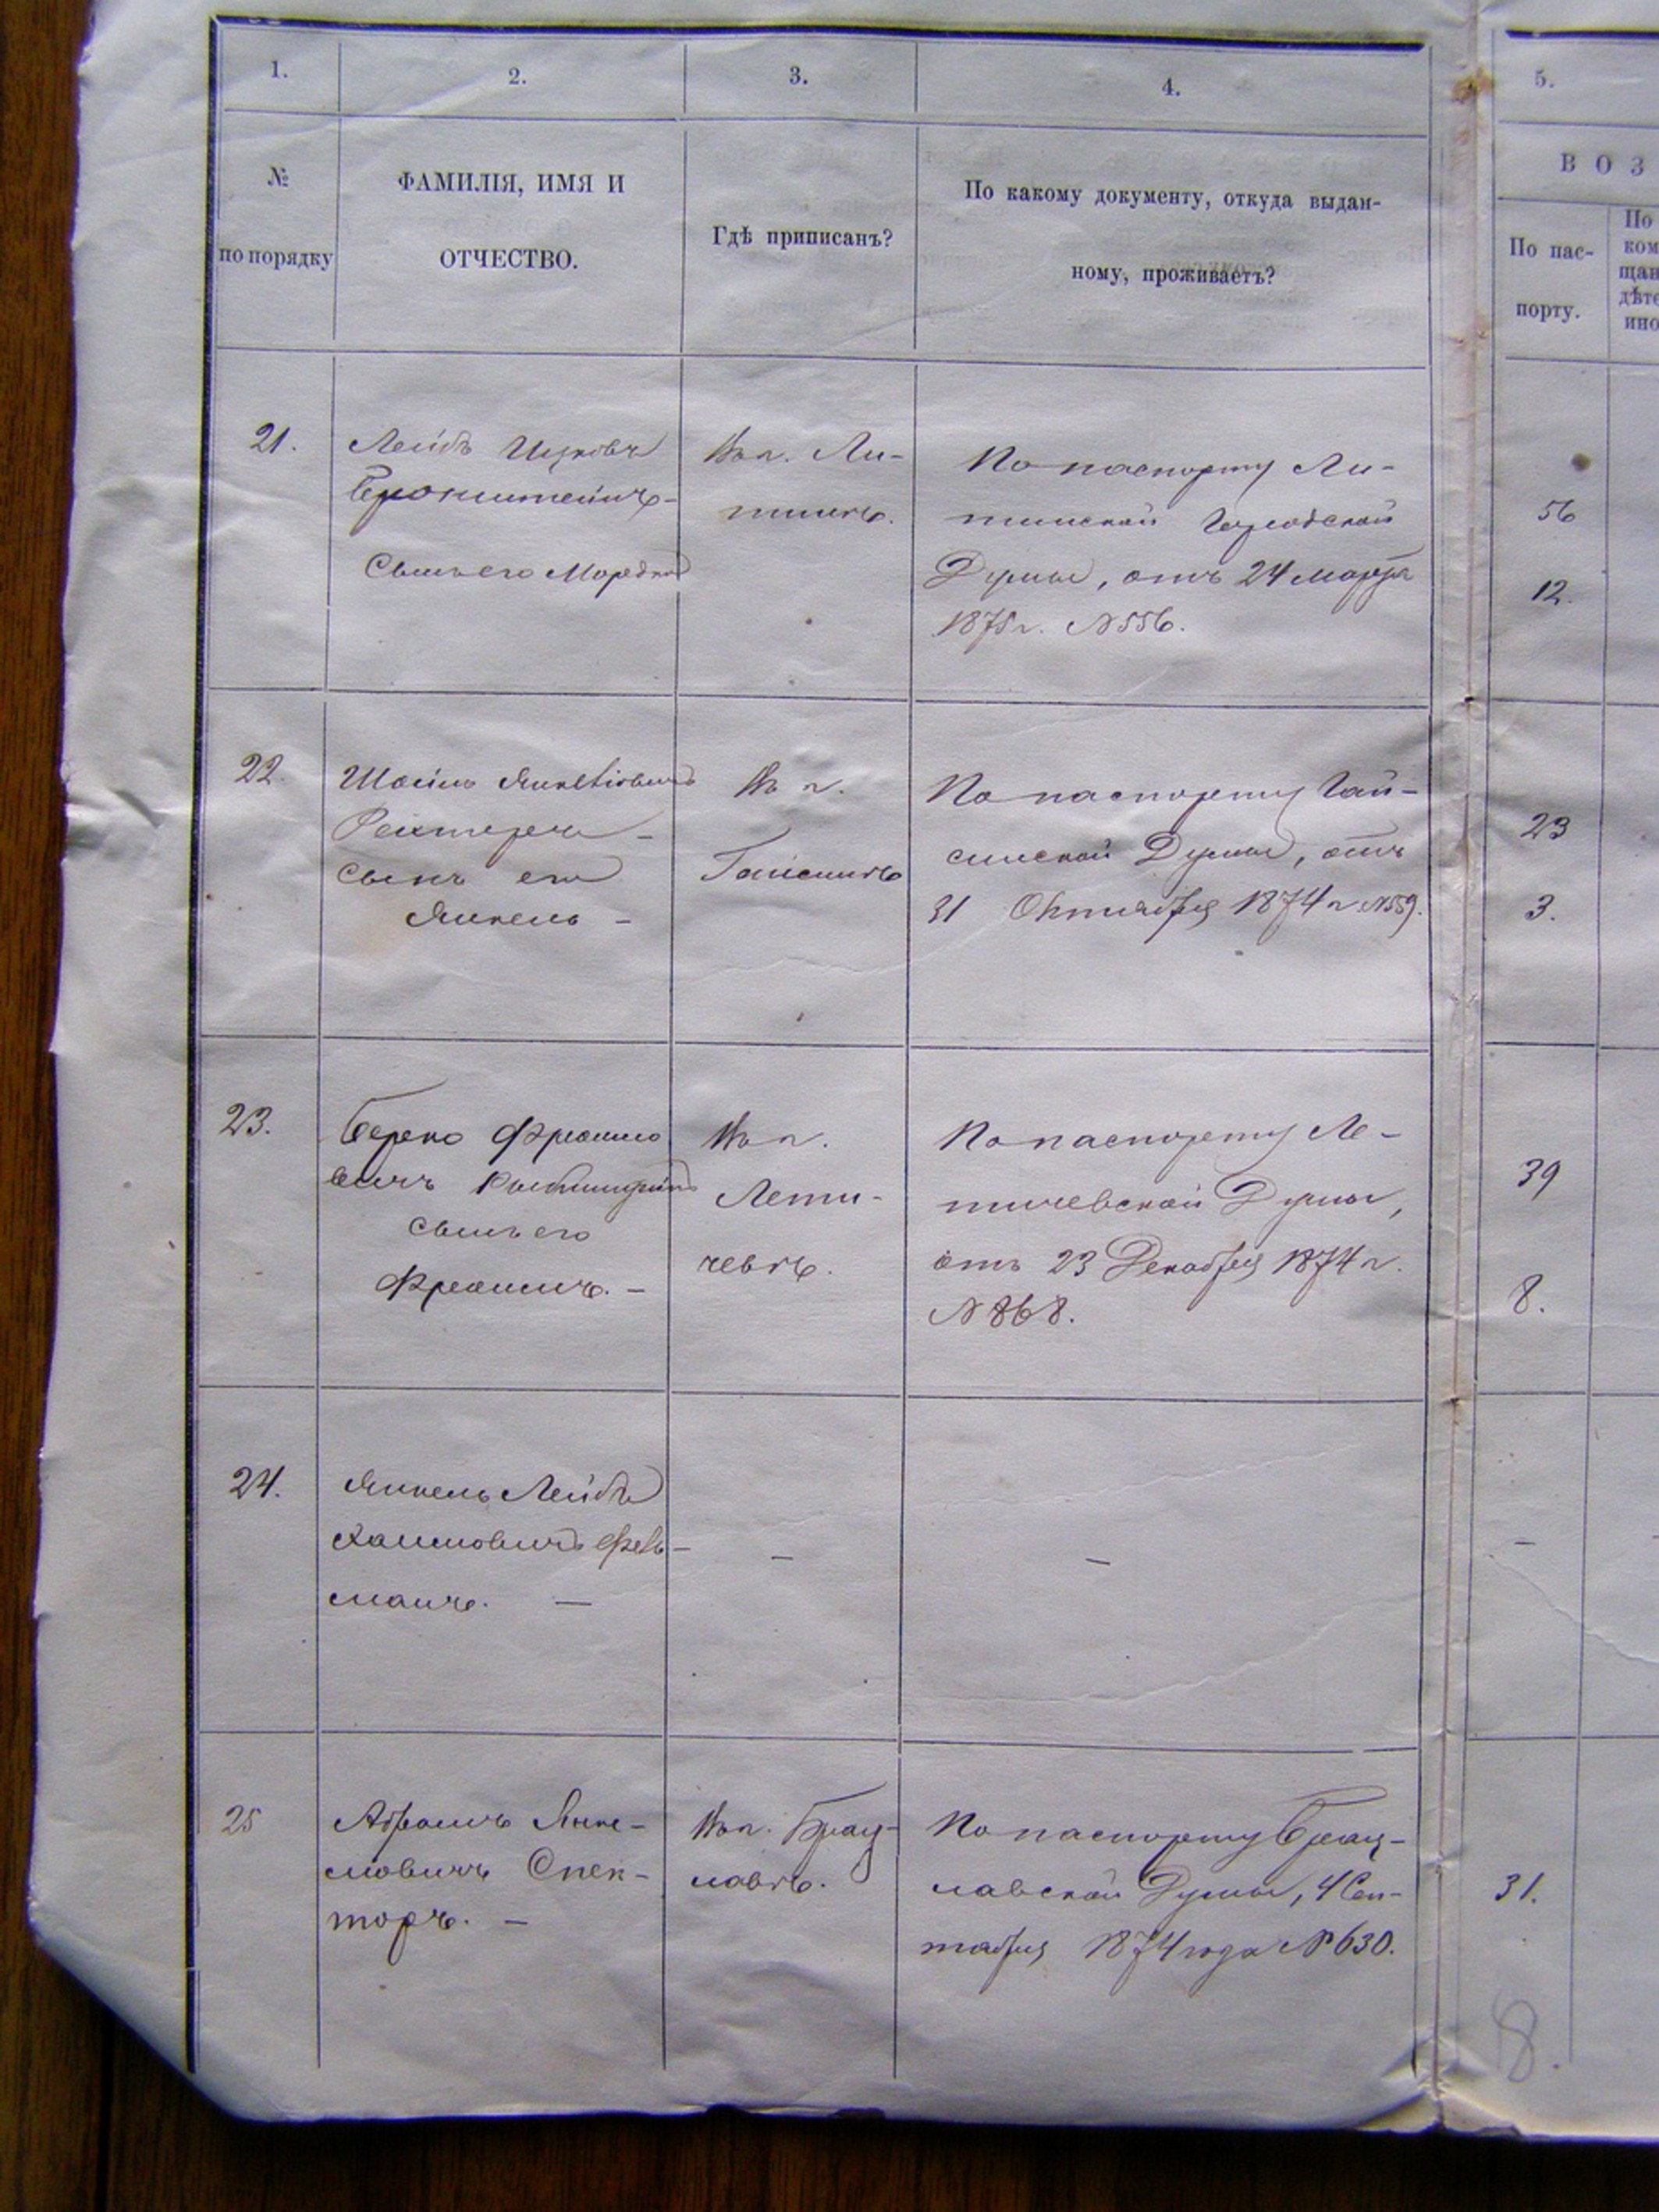 1.
2.
3.
4.
5.
№
по порядку
ФАМИЛІЯ, ИМЯ И
ОТЧЕСТВО.
Гдѣ приписанъ?
По какому документу, откуда выдан-
ному, проживаетъ?
ВОЗ
По пас-
порту.
По
ком
щан
дѣте
ино
21.
Лейбъ Ицковъ
Бронштейнъ-
Сынъ его Мордко
Въ г. Ли-
тинѣ.
По паспорту Ли-
тинской Городской
Думы, отъ 24 Марта
1875 г. №556.
56
12.
22.
Шоилъ Янкелiовичъ
Рехтеръ -
Сынъ его
Янкель -
Въ г.
Гайсинѣ
По паспорту Гай-
синской Думы, отъ
31 Октября 1874 г. №559.
23
3.
23.
Берко Фроимо
вичъ
Сынъ его
Фроимъ. -
Въ г.
Лети-
чевѣ.
По паспорту Ле-
тичевской Думы,
отъ 23 Декабря 1874 г.
№868.
39
8.
24.
Янкель Лейба
Хаимовичъ Фель-
манъ. -
-
-
-
25
Абрамъ Янке-
лiовичъ Спек-
торъ. -
Въ г. Брац-
лавѣ.
По паспорту Брац-
лавской Думы, 4 Сен-
тября 1874 года №630.
31.
8.